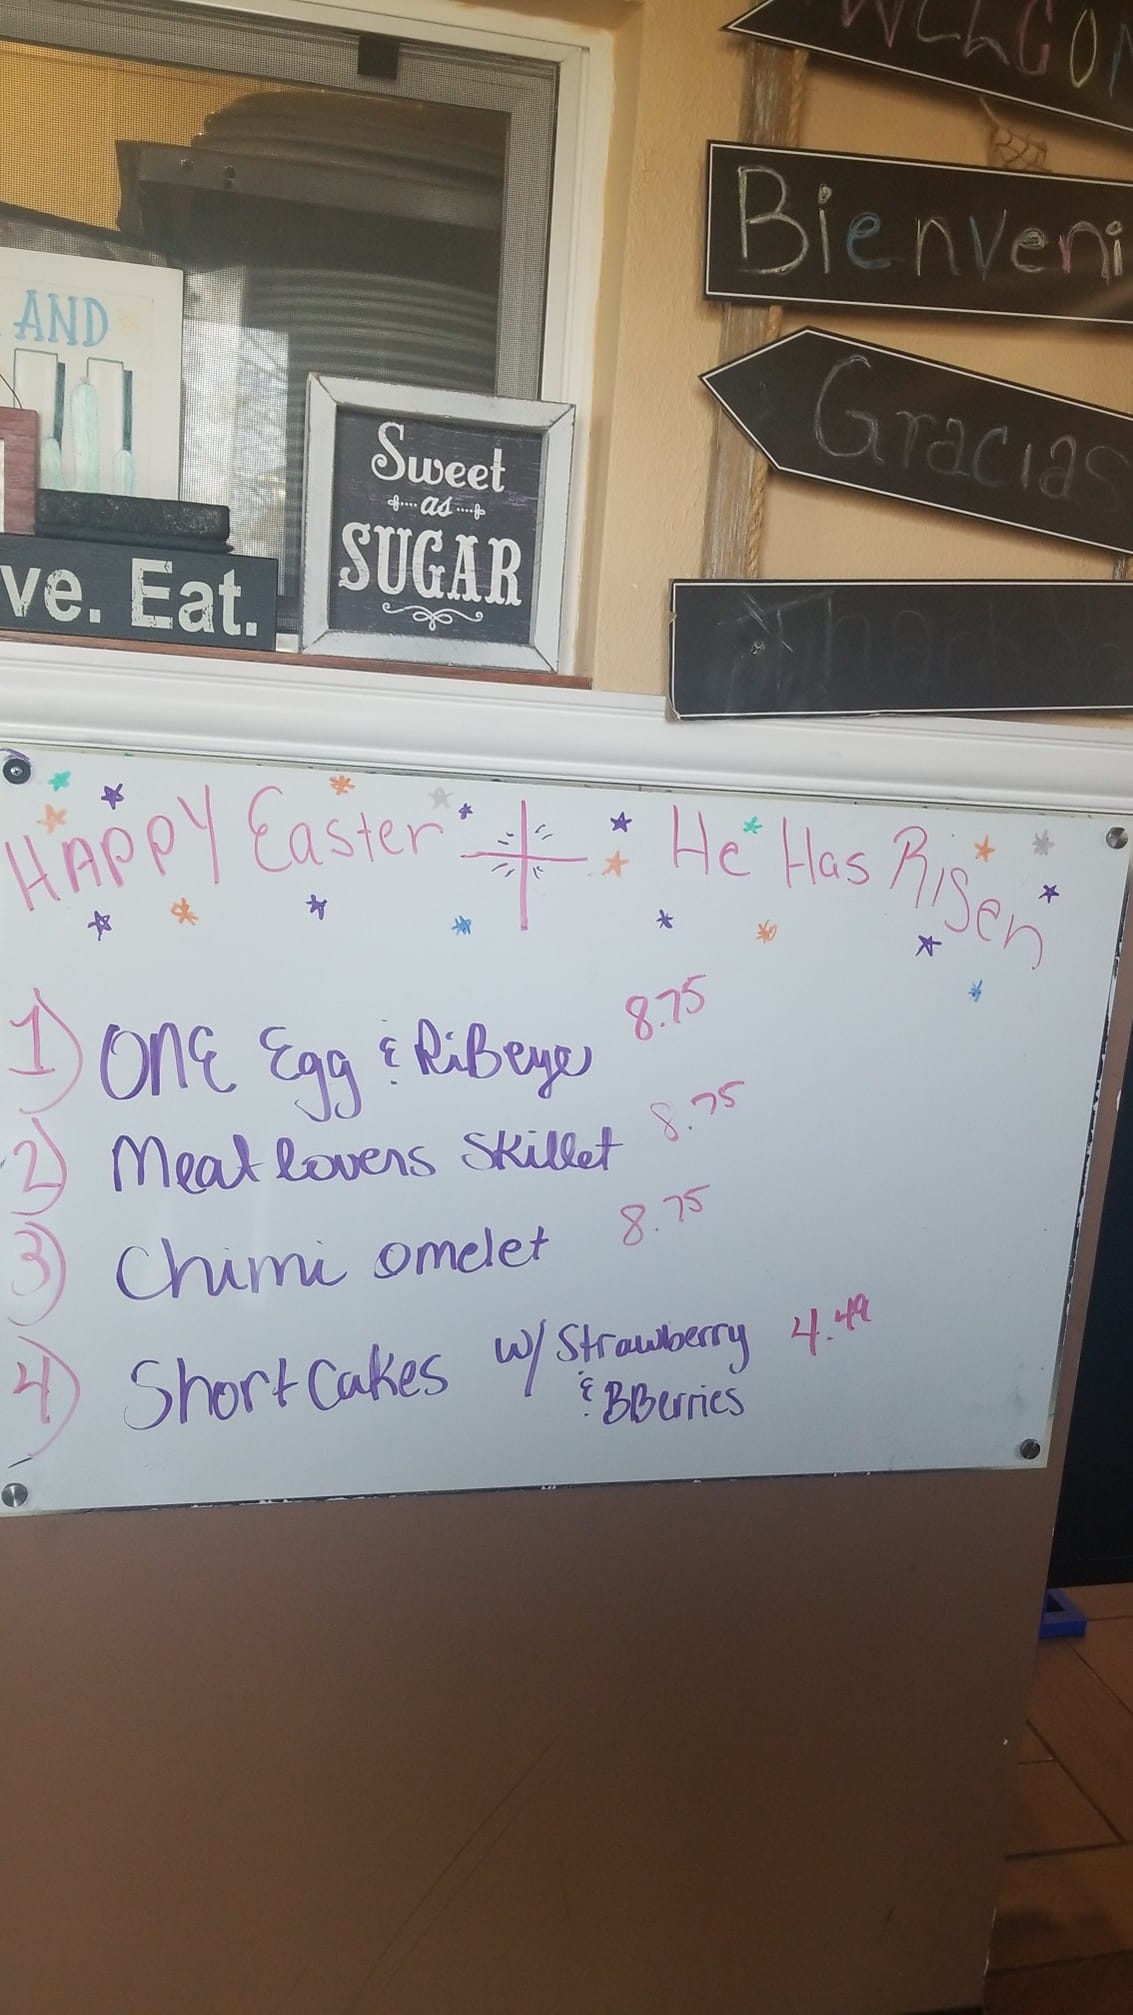 WELCOM
Bienveni
Gracias
Thank
AND
Sweet
as
SUGAR
ve. Eat.
HAPPY Easter He Has Risen
1) ONE Egg & RiBeye 8.75
2) Meat lovers Skillet 8.75
3) Chimi omelet 8.75
4) Short Cakes w/ Strawberry 4.49
& BBerries